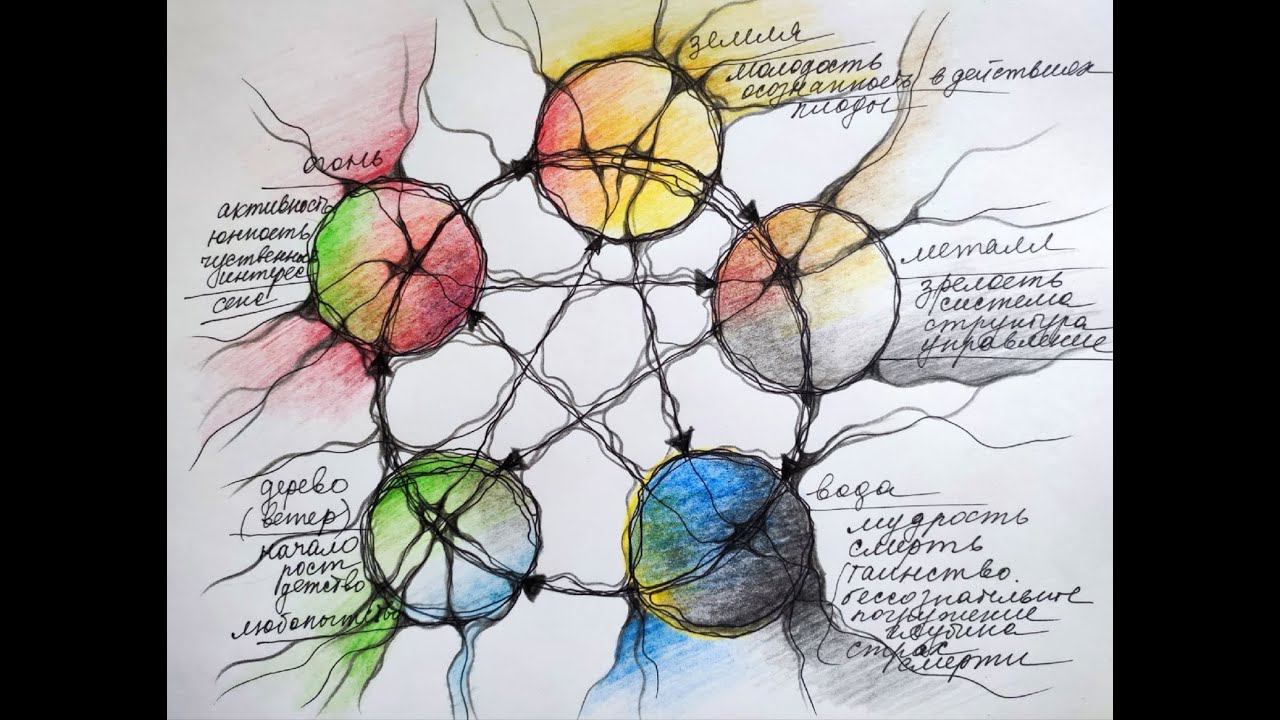 земля
молодость
осознанность в действиях
плоды
огонь
активность
юность
чуственность
интерес
металл
зрелость
система
структура
управление
дерево
(ветер)
начало
рост
детство
вода
мудрость
смерть
таинство.
погружение
глубина
страх
смерти